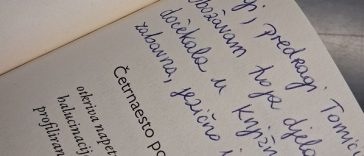 predragi Tomić
obožavam tvoja djela
dočekala u Knjižn
zabavna, jezično i
Četrnaesto po
otkriva napet
halucinacij
profiliran